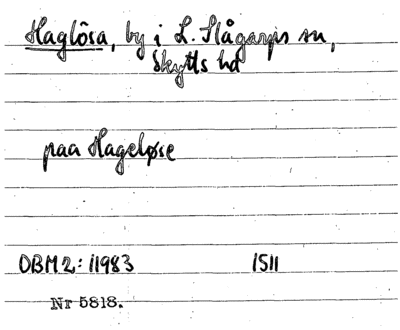 Haglösa, by i L. Slågarps sn,
Skytts hd
paa Hageløse
DBM 2: 11983 1511
Nr 5818.